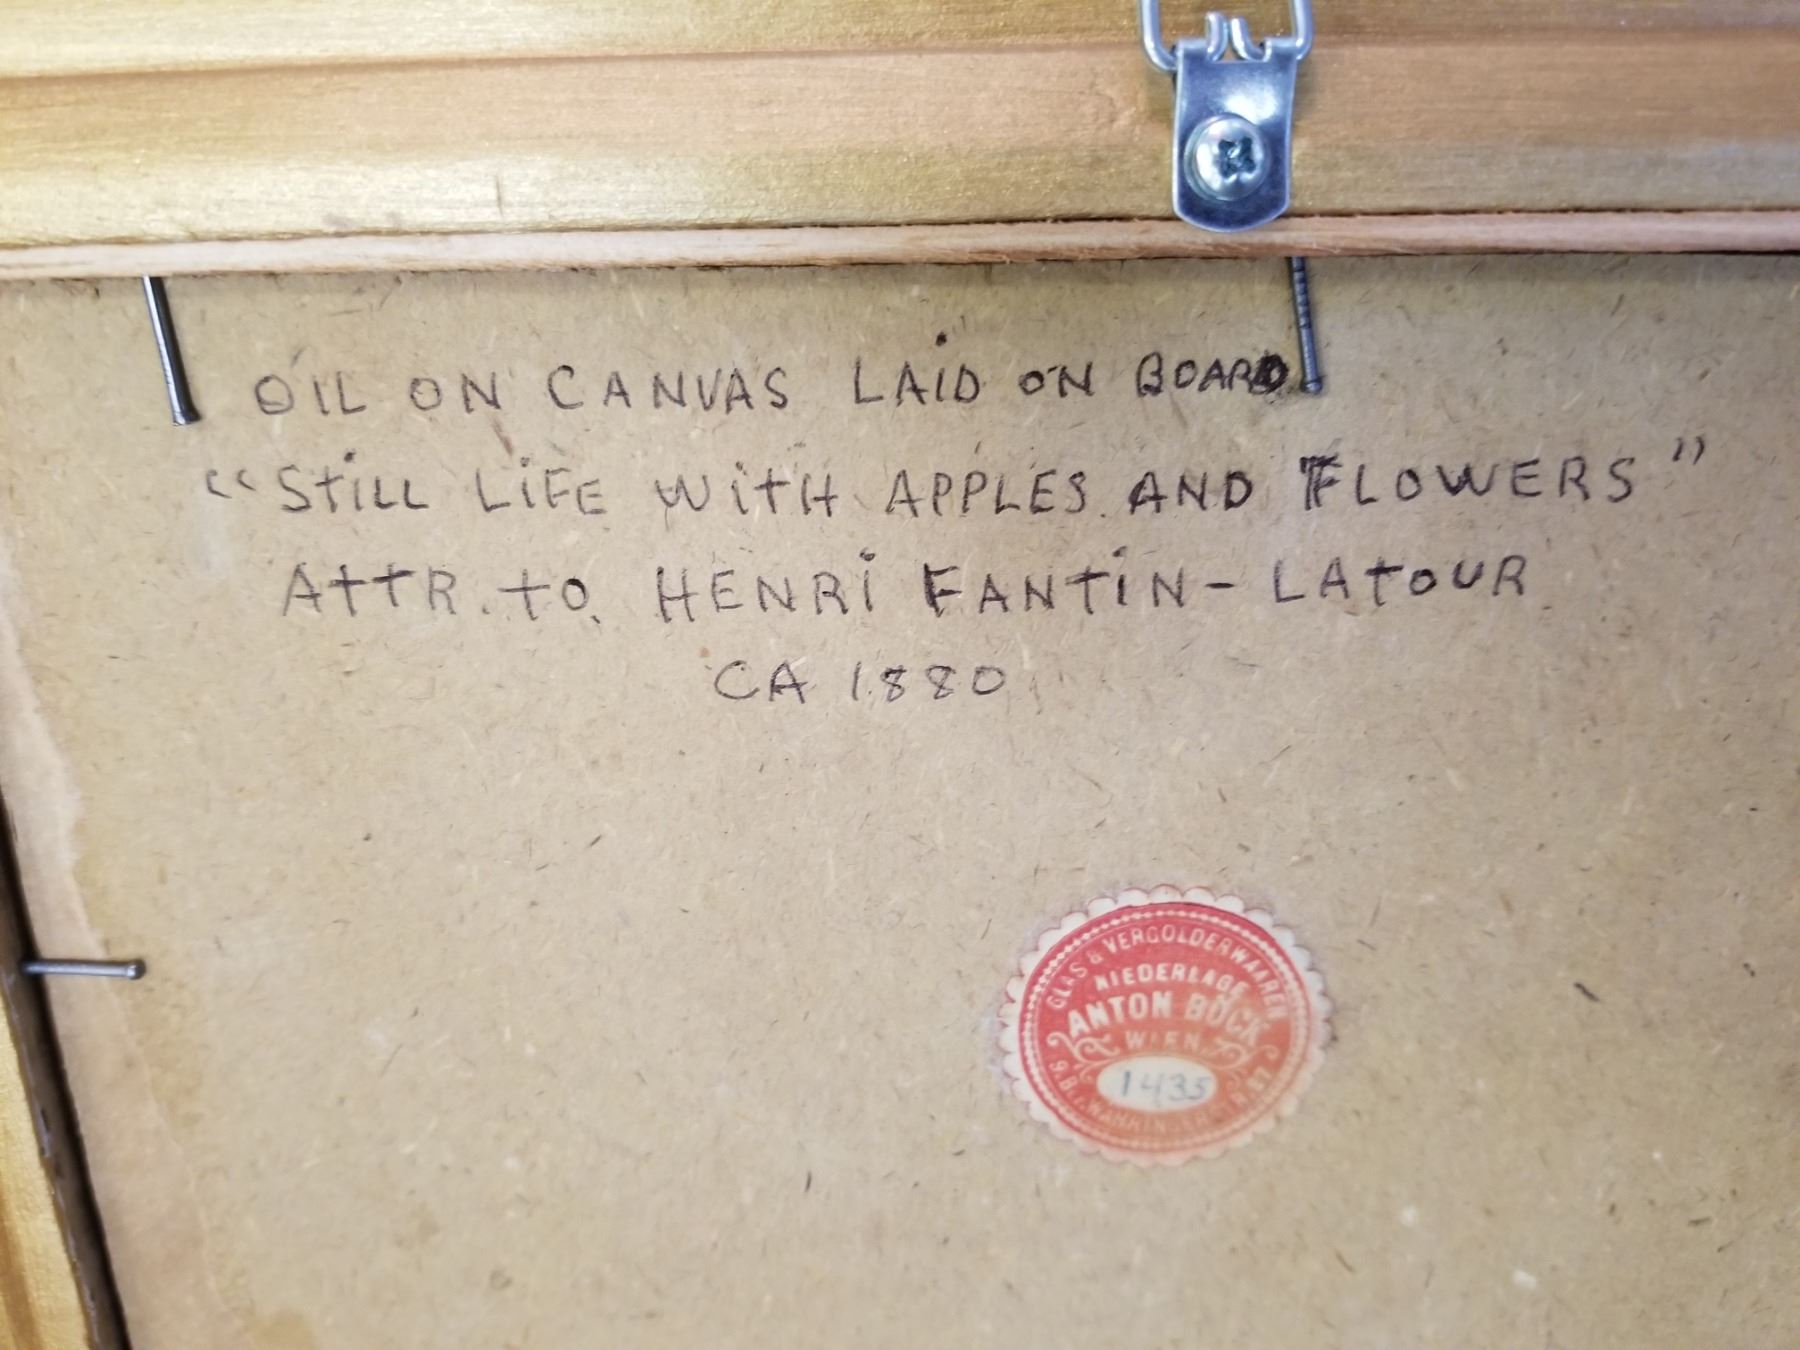 OIL ON CANVAS LAID ON BOARD
"STILL LIFE WITH APPLES AND FLOWERS"
ATTR. TO. HENRI FANTIN-LATOUR
CA 1880
GLAS & VERGOLDERWAAREN
NIEDERLAGE
ANTON BÖCK
WIEN
1435